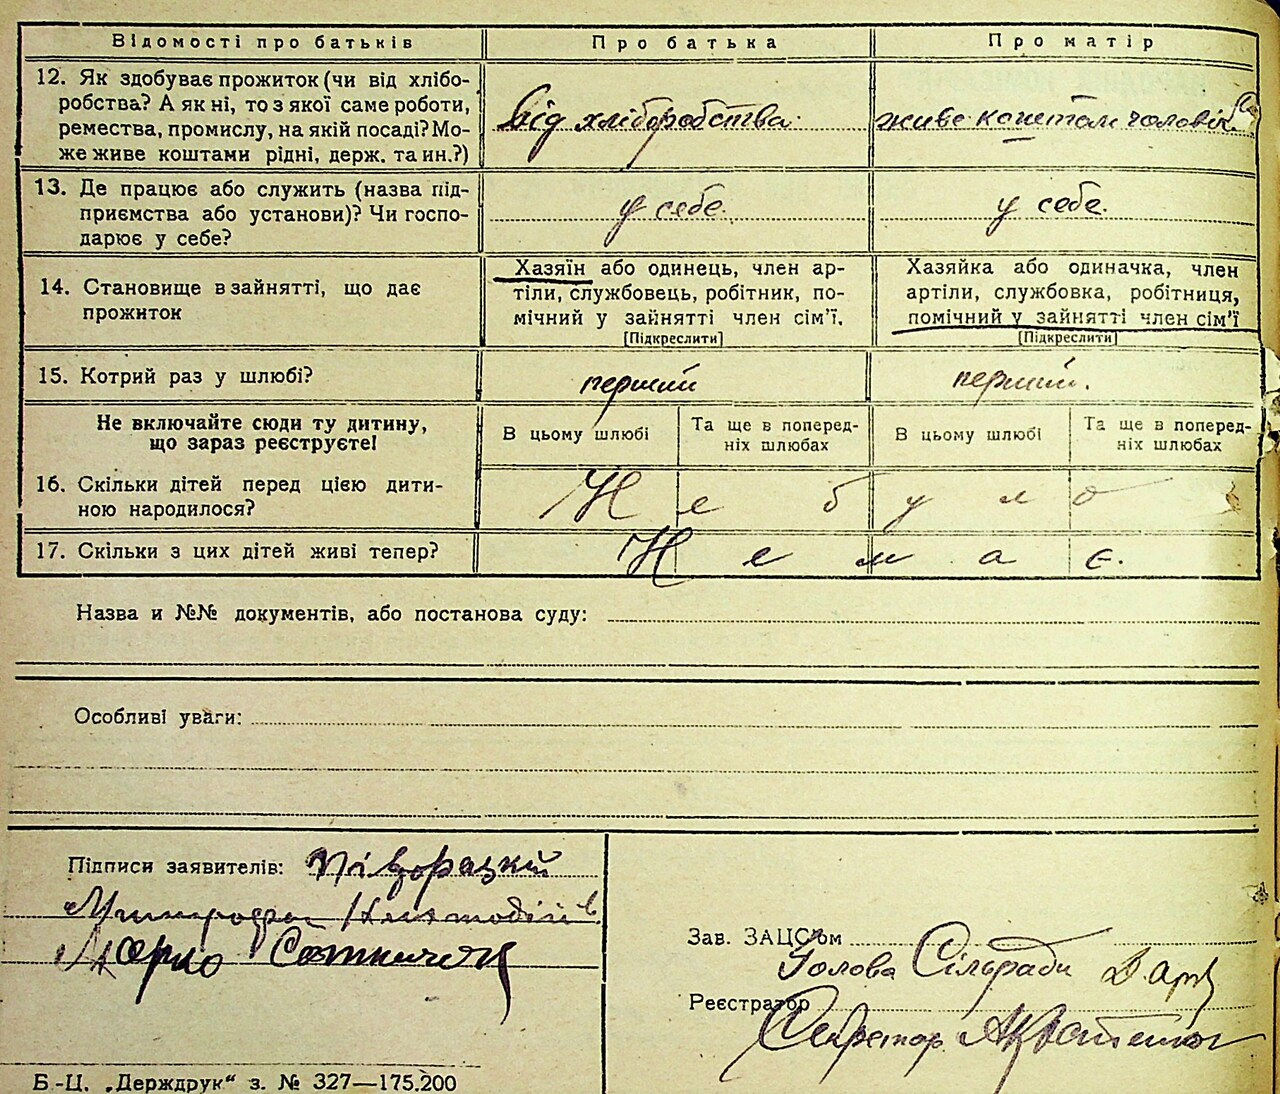 Відомості про батьків
Про батька
Про матір
12. Як здобуває прожиток (чи від хлібо-
робства? А як ні, то з якої саме роботи,
ремества, промислу, на якій посаді? Мо-
же живе коштами рідні, держ. та ин.?)
від хліборобства
живе коштом чоловіка
13. Де працює або служить (назва під-
приємства або установи)? Чи госпо-
дарює у себе?
у себе.
у себе.
14. Становище в зайнятті, що дає
прожиток
Хазяїн або одинець, член ар-
тіли, службовець, робітник, по-
мічний у зайнятті член сім'ї.
[Підкреслити]
Хазяйка або одиначка, член
артіли, службовка, робітниця,
помічний у зайнятті член сім'ї
[Підкреслити]
15. Котрий раз у шлюбі?
перший
перший.
Не включайте сюди ту дитину,
що зараз реєструєте!
В цьому шлюбі
Та ще в поперед-
ніх шлюбах
В цьому шлюбі
Та ще в поперед-
ніх шлюбах
16. Скільки дітей перед цією дити-
ною народилося?
Не було
17. Скільки з цих дітей живі тепер?
Немає.
Назва и №№ документів, або постанова суду:
Особливі уваги:
Підписи заявителів:
Марко
Зав. ЗАЦС'ом
Голова Сільради
Реєстратор
Секретар
Б.-Ц. „Держдрук" з. № 327—175.200